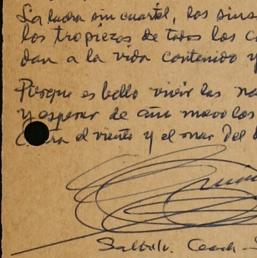 La lucha sin cuartel, los sins
los tropiezos de todos los c
dan a la vida contenido y
Porque es bello vivir las na
y esperar de año nuevo los
el viento y el mar del